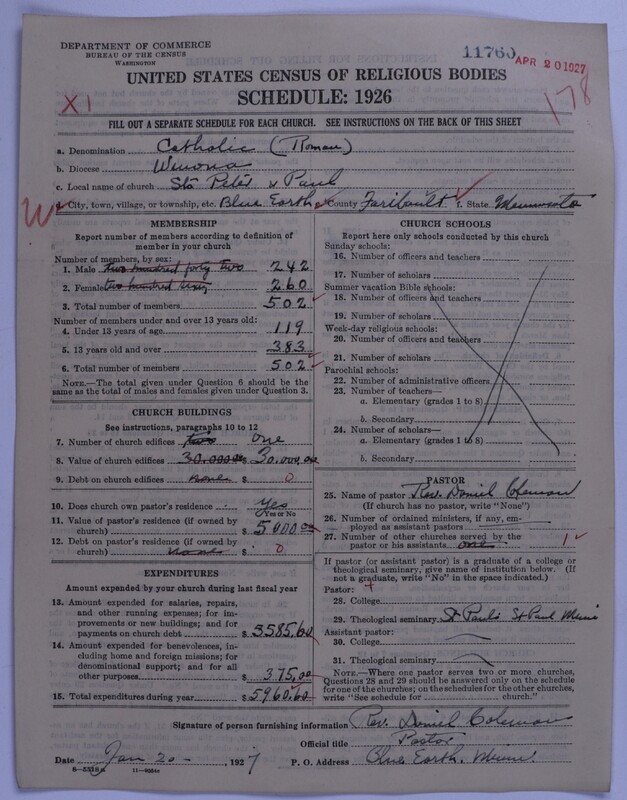 DEPARTMENT OF COMMERCE
BUREAU OF THE CENSUS
WASHINGTON
11760
APR 20 1927
UNITED STATES CENSUS OF RELIGIOUS BODIES
SCHEDULE: 1926
X1
178
FILL OUT A SEPARATE SCHEDULE FOR EACH CHURCH. SEE INSTRUCTIONS ON THE BACK OF THIS SHEET
a. Denomination Catholic (Roman)
b. Diocese Winona
c. Local name of church Sts Peter & Paul
City, town, village, or township, etc. Blue Earth e. County Faribault f. State Minnesota
MEMBERSHIP
Report number of members according to definition of
member in your church
Number of members, by sex:
1. Male two hundred forty two 242
2. Female two hundred sixty 260
3. Total number of members 502
Number of members under and over 13 years old:
4. Under 13 years of age 119
5. 13 years old and over 383
6. Total number of members 502
NOTE.—The total given under Question 6 should be
the same as the total of males and females given under Question 3.
CHURCH BUILDINGS
See instructions, paragraphs 10 to 12
7. Number of church edifices two one
8. Value of church edifices 30.000 00 $ 30.000.00
9. Debt on church edifices none $ 0
10. Does church own pastor's residence Yes
(Yes or No)
11. Value of pastor's residence (if owned by
church) $ 5000.00
12. Debt on pastor's residence (if owned by
church) none $ 0
EXPENDITURES
Amount expended by your church during last fiscal year
13. Amount expended for salaries, repairs,
and other running expenses; for im-
provements or new buildings; and for
payments on church debt $ 5585.60
14. Amount expended for benevolences, in-
cluding home and foreign missions; for
denominational support; and for all
other purposes $ 375.00
15. Total expenditures during year $ 5960.60
CHURCH SCHOOLS
Report here only schools conducted by this church
Sunday schools:
16. Number of officers and teachers
17. Number of scholars
Summer vacation Bible schools:
18. Number of officers and teachers
19. Number of scholars
Week-day religious schools:
20. Number of officers and teachers
21. Number of scholars
Parochial schools:
22. Number of administrative officers
23. Number of teachers—
a. Elementary (grades 1 to 8)
b. Secondary
24. Number of scholars—
a. Elementary (grades 1 to 8)
b. Secondary
PASTOR
25. Name of pastor Rev. Daniel Coleman
(If church has no pastor, write "None")
26. Number of ordained ministers, if any, em-
ployed as assistant pastors
27. Number of other churches served by the
pastor or his assistants one 1
If pastor (or assistant pastor) is a graduate of a college or
theological seminary, give name of institution below. (If
not a graduate, write "No" in the space indicated.)
Pastor:
28. College
29. Theological seminary St Pauls St Paul Minn
Assistant pastor:
30. College
31. Theological seminary
NOTE.—Where one pastor serves two or more churches,
Questions 28 and 29 should be answered only on the schedule
for one of the churches; on the schedules for the other churches,
write "See schedule for church."
Signature of person furnishing information Rev. Daniel Coleman
Official title Pastor
Date Jan 20 , 1927 P. O. Address Blue Earth, Minn.
8-5518a